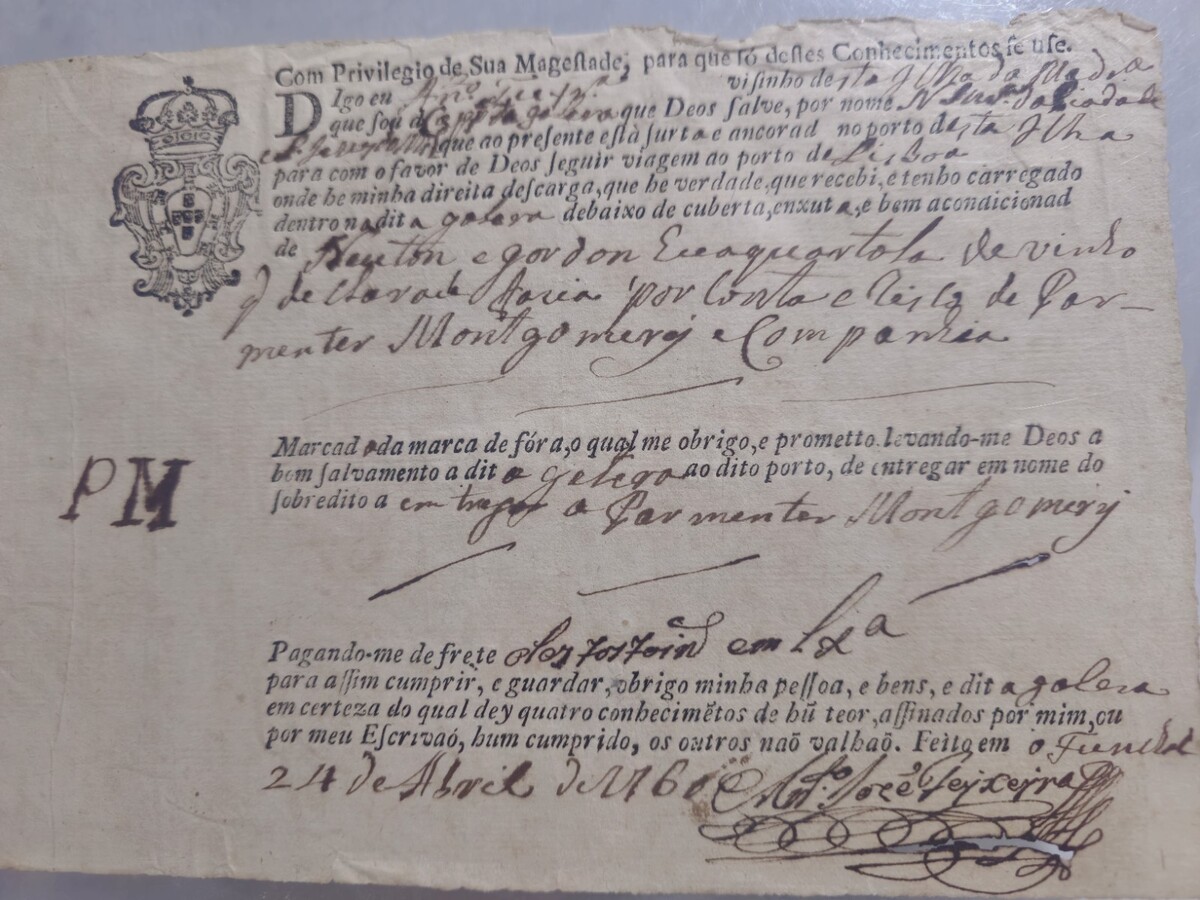 Com Privilegio de Sua Magestade, para que só destes Conhecimentos se use.
DIgo eu Anº visinho desta Ilha da Madra
que sou Capp da galera que Deos salve, por nome N. Snrª da
que ao presente està surta e ancorad no porto desta Ilha
para com o favor de Deos seguir viagem ao porto de Lisboa
onde he minha direita descarga, que he verdade, que recebi, e tenho carregado
dentro na dita galera debaixo de cuberta, enxuta, e bem acondicionad
de Neuton e gordon quartola de vinho
por Conta e Risco de Par-
menter Montgomerij e Companhia
PM
Marcado da marca de fóra, o qual me obrigo, e prometto, levando-me Deos a
bom salvamento a dita galera ao dito porto, de entregar em nome do
sobredito a emtregar a Parmenter Montgomerij
Pagando-me de frete em Lxª
para assim cumprir, e guardar, obrigo minha pessoa, e bens, e dita galera
em certeza do qual dey quatro conhecimẽtos de hũ teor, assinados por mim, ou
por meu Escrivaõ, hum cumprido, os outros naõ valhaõ. Feito em o Funchal
24 de Abril de Antº José Teyxeyra